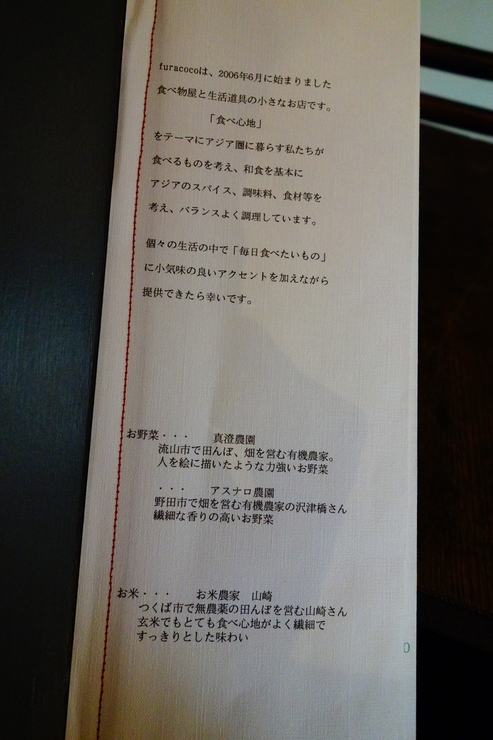 furacocoは、2006年6月に始まりました
食べ物屋と生活道具の小さなお店です。
「食べ心地」
をテーマにアジア圏に暮らす私たちが
食べるものを考え、和食を基本に
アジアのスパイス、調味料、食材等を
考え、バランスよく調理しています。
個々の生活の中で「毎日食べたいもの」
に小気味の良いアクセントを加えながら
提供できたら幸いです。
お野菜・・・　　真澄農園
流山市で田んぼ、畑を営む有機農家。
人を絵に描いたような力強いお野菜
・・・　　アスナロ農園
野田市で畑を営む有機農家の沢津橋さん
繊細な香りの高いお野菜
お米・・・　　お米農家　山崎
つくば市で無農薬の田んぼを営む山崎さん
玄米でもとても食べ心地がよく繊細で
すっきりとした味わい